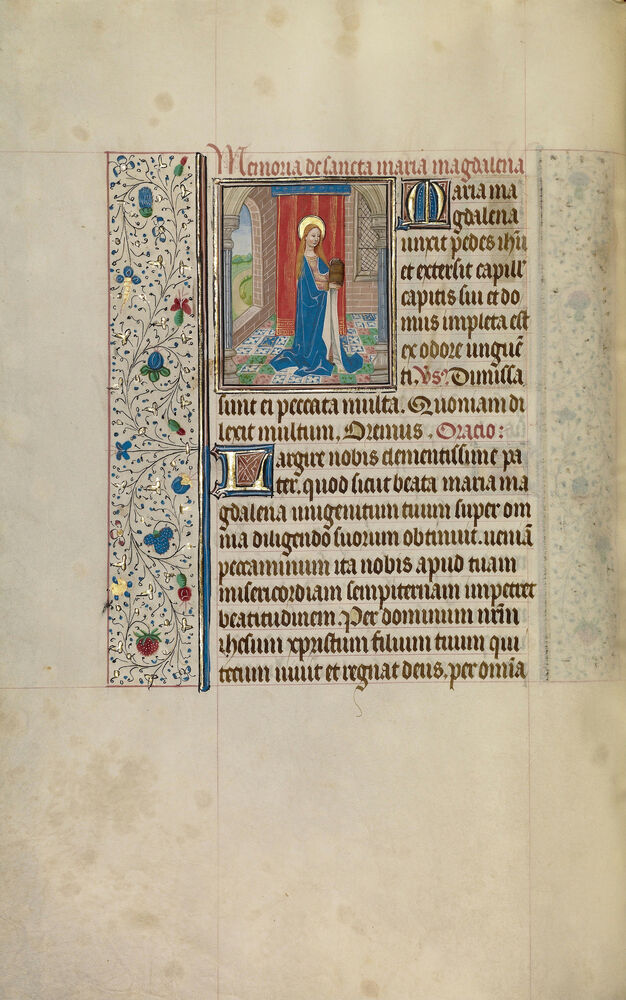 Memoria de sancta maria magdalena
Maria ma
gdalena
unxit pedes ihū
et extersit capill'
capitis sui et do
mus impleta est
ex odore unguē
ti. Vs'. Dimissa
sunt ei peccata multa. Quoniam di
lexit multum. Oremus. Oracio:
Largire nobis clementissime pa
ter. quod sicut beata maria ma
gdalena unigenitum tuum super om
nia diligendo suorum obtinuit. ueniā
peccaminum ita nobis apud tuam
misericordiam sempiternam impetret
beatitudinem. Per dominum nr̄m
ihesum xpristum filium tuum qui
tecum uiuit et regnat deus. per om̄ia